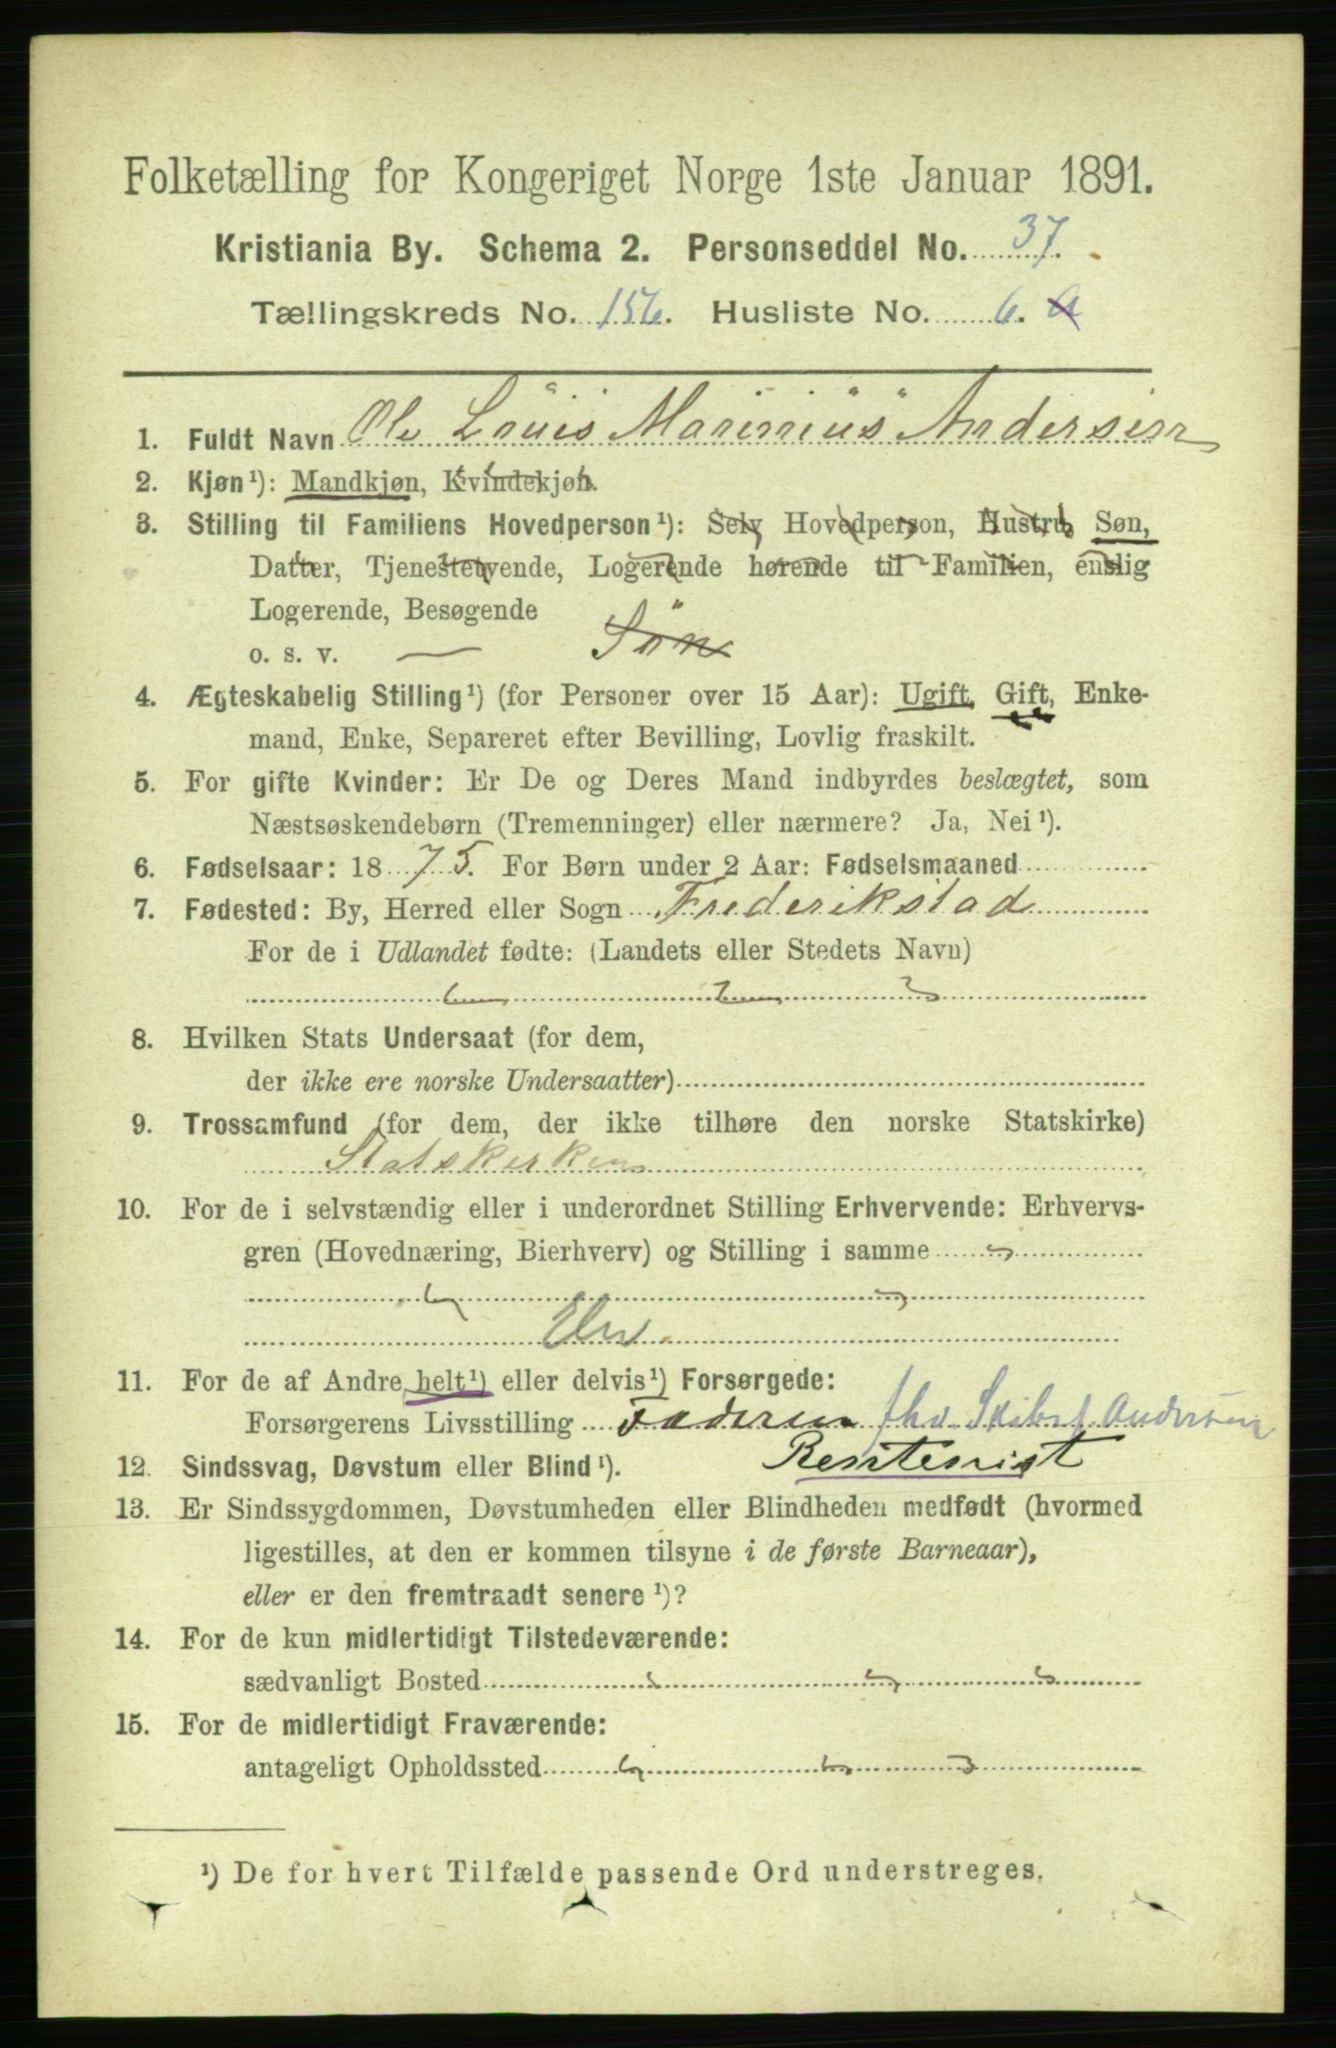 Folketælling for Kongeriget Norge 1ste Januar 1891.
Kristiania By. Schema 2. Personseddel No. 37.
Tællingskreds No. 156. Husliste No. 6. a
1. Fuldt Navn Ole Louis Marinius Andersen
2. Kjøn ¹): Mandkjøn, Kvindekjøn.
3. Stilling til Familiens Hovedperson ¹): Selv Hovedperson, Hustru, Søn,
Datter, Tjenestetyende, Logerende hørende til Familien, enslig
Logerende, Besøgende
o. s. v. — Søn
4. Ægteskabelig Stilling ¹) (for Personer over 15 Aar): Ugift, Gift, Enke-
mand, Enke, Separeret efter Bevilling, Lovlig fraskilt.
5. For gifte Kvinder: Er De og Deres Mand indbyrdes beslægtet, som
Næstsøskendebørn (Tremenninger) eller nærmere? Ja, Nei ¹).
6. Fødselsaar: 1875. For Børn under 2 Aar: Fødselsmaaned
7. Fødested: By, Herred eller Sogn Frederikstad
For de i Udlandet fødte: (Landets eller Stedets Navn)
8. Hvilken Stats Undersaat (for dem,
der ikke ere norske Undersaatter)
9. Trossamfund (for dem, der ikke tilhøre den norske Statskirke)
Statskirken
10. For de i selvstændig eller i underordnet Stilling Erhvervende: Erhvervs-
gren (Hovednæring, Bierhverv) og Stilling i samme
Elev.
11. For de af Andre helt ¹) eller delvis ¹) Forsørgede:
Forsørgerens Livsstilling Faderen fhv Skibsf Andersen
12. Sindssvag, Døvstum eller Blind ¹). Rentenist
13. Er Sindssygdommen, Døvstumheden eller Blindheden medfødt (hvormed
ligestilles, at den er kommen tilsyne i de første Barneaar),
eller er den fremtraadt senere ¹)?
14. For de kun midlertidigt Tilstedeværende:
sædvanligt Bosted
15. For de midlertidigt Fraværende:
antageligt Opholdssted
¹) De for hvert Tilfælde passende Ord understreges.